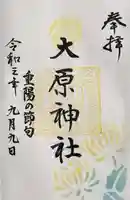 奉拝
大原神社
重陽の節句
令和三年 九月九日